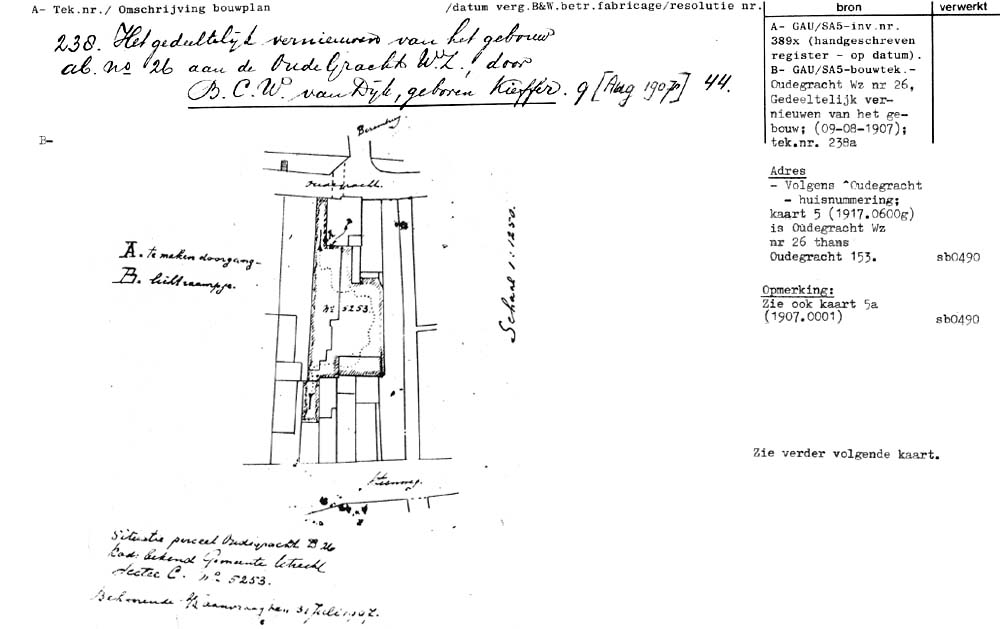 A- Tek.nr./ Omschrijving bouwplan
/datum verg.B&W.betr.fabricage/resolutie nr.
bron
verwerkt
238. Het gedeeltelijk vernieuwen van het gebouw
ab. no 26 aan de Oude Gracht W.Z., door
B. C. W. van Dijk, geboren Kieffer. 9 [Aug 1907] 44.
A- GAU/SA5-inv.nr.
389x (handgeschreven
register - op datum).
B- GAU/SA5-bouwtek.-
Oudegracht Wz nr 26,
Gedeeltelijk ver-
nieuwen van het ge-
bouw; (09-08-1907);
tek.nr. 238a
B-
Oudegracht.
A. te maken doorgang.
B. lichtraampje.
No 5253.
Schaal 1:1250.
Adres
- Volgens ^Oudegracht
- huisnummering;
kaart 5 (1917.0600g)
is Oudegracht Wz
nr 26 thans
Oudegracht 153.
sb0490
Opmerking:
Zie ook kaart 5a
(1907.0001)
sb0490
Zie verder volgende kaart.
Steenweg.
Situatie perceel Oudegracht B 26
Kad: bekend Gemeente Utrecht
Sectie C. no 5253.
Behoorende b/ aanvraag van 31 Juli 1907.